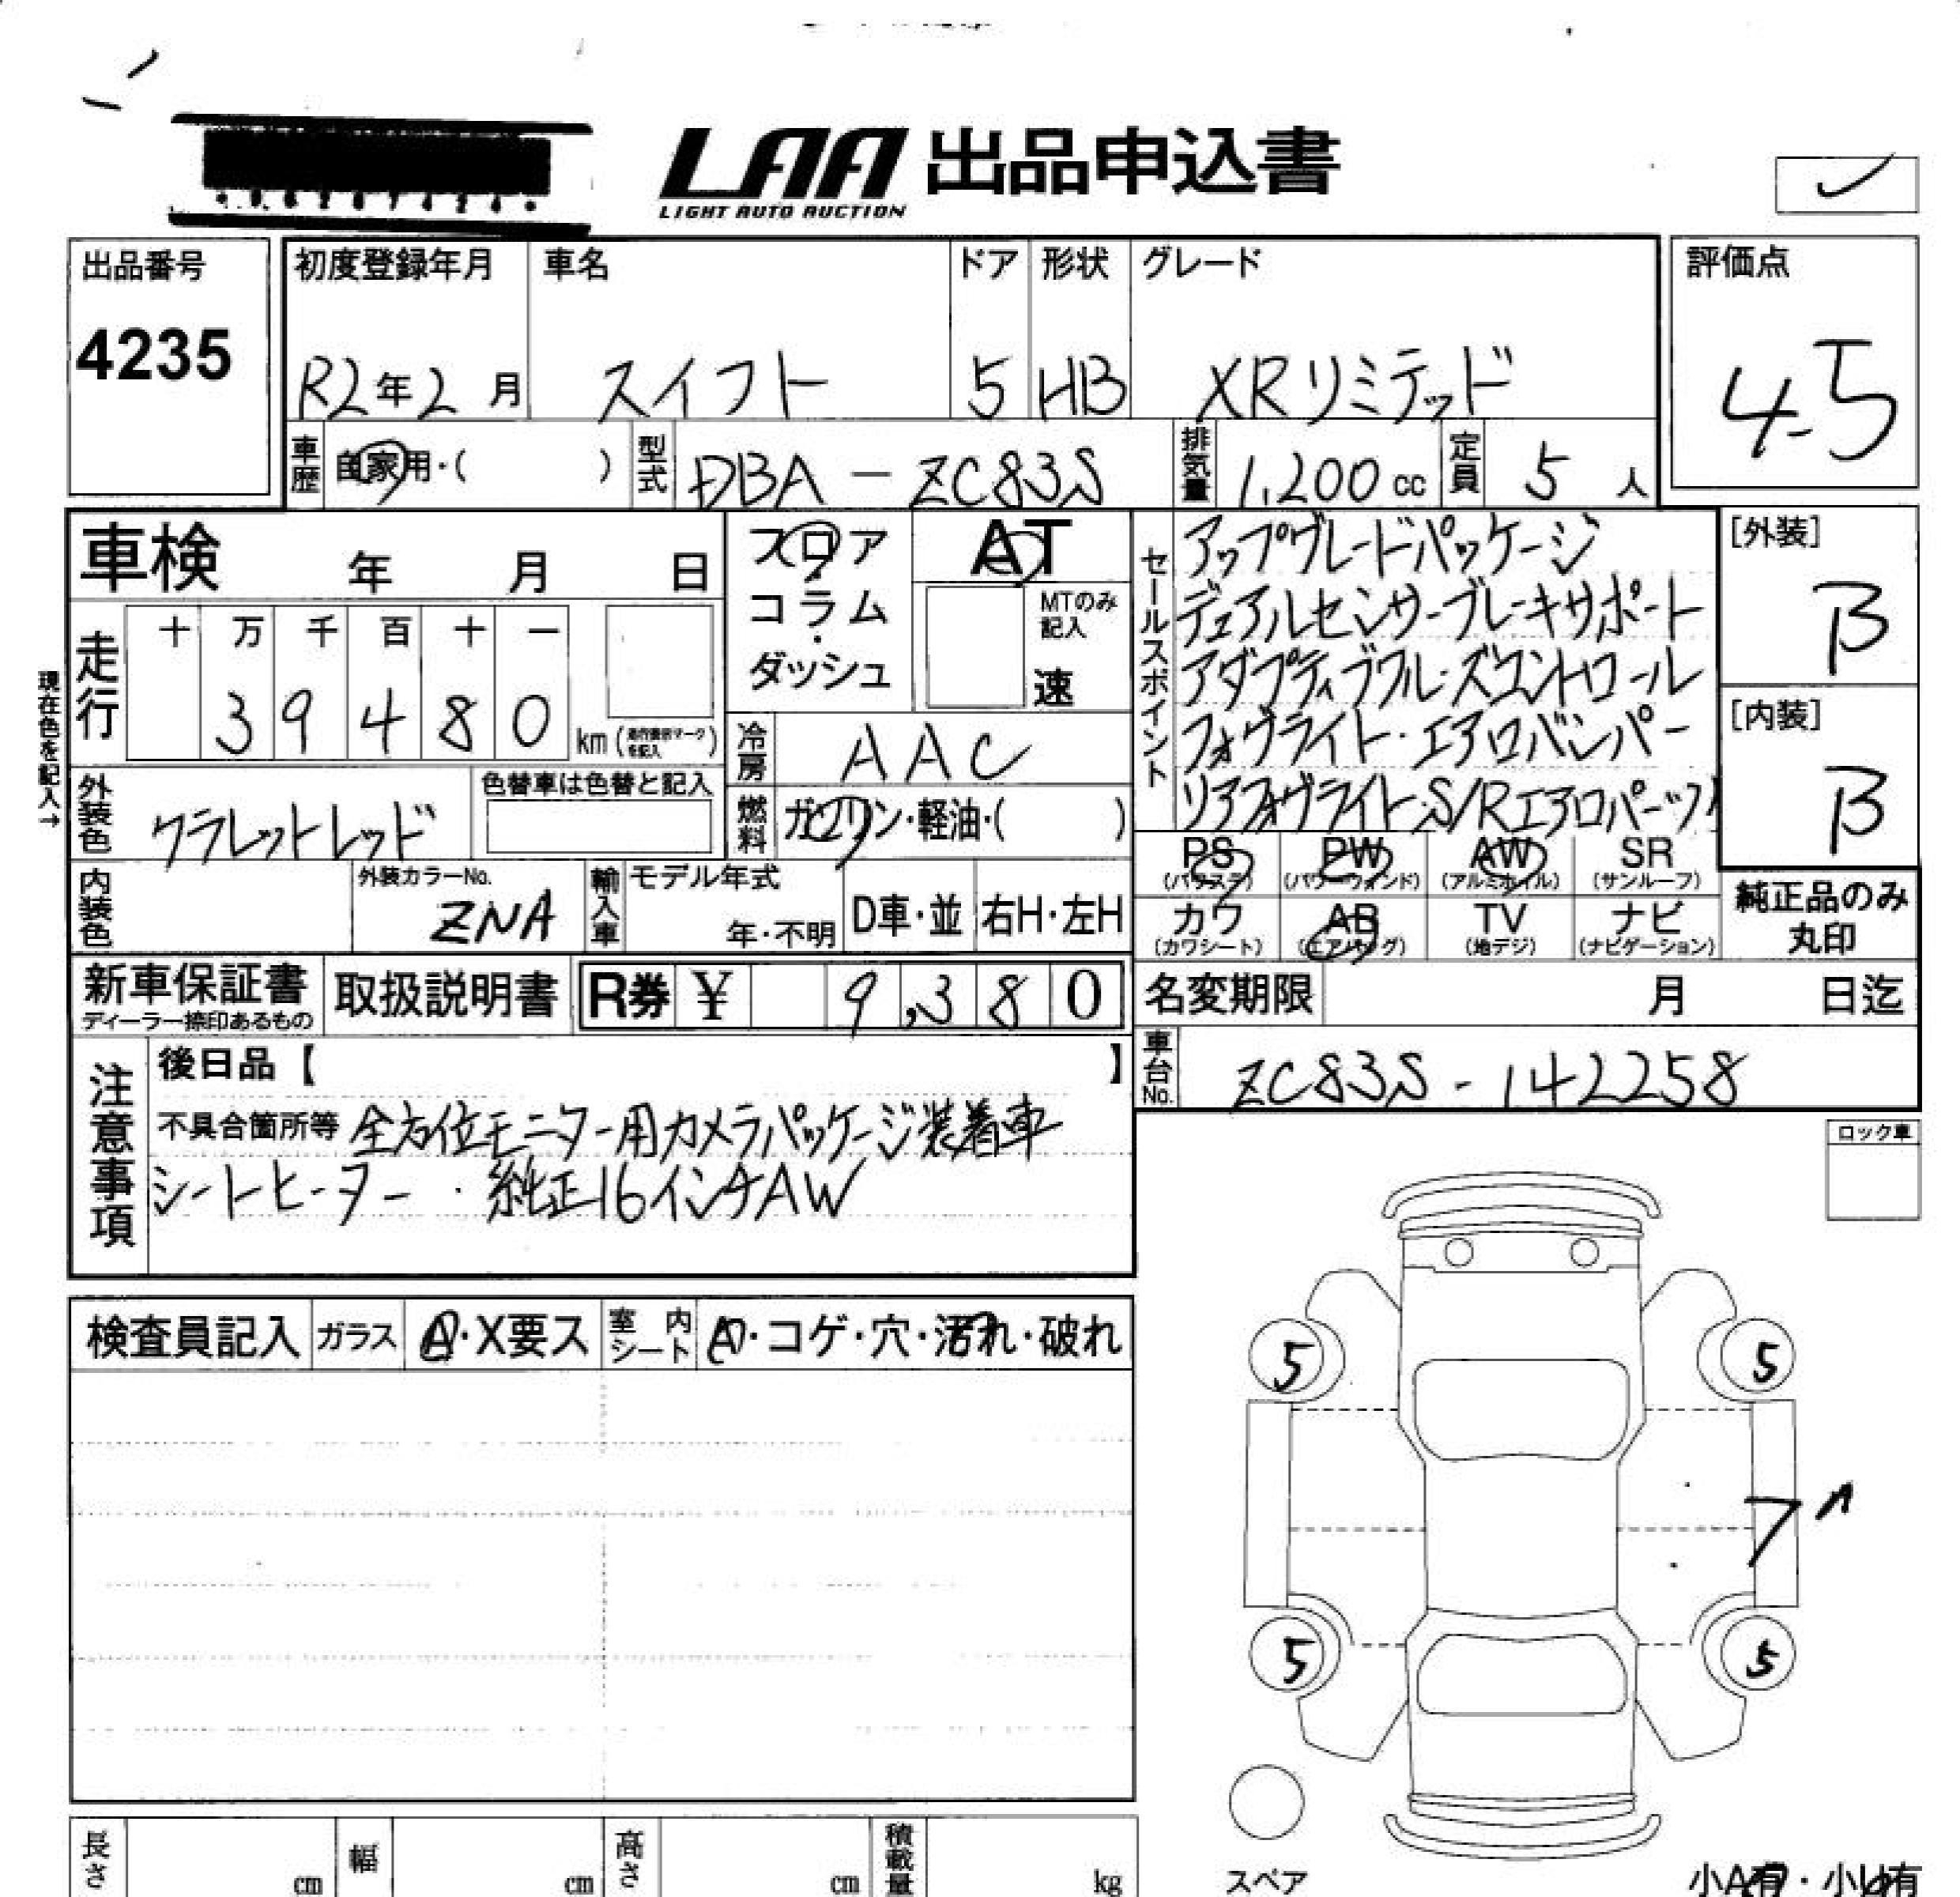 LAA 出品申込書
LIGHT AUTO AUCTION
出品番号
4235
初度登録年月
R2年2月
車名
スイフト
ドア
5
形状
HB
グレード
XRリミテッド
評価点
4.5
車歴
自家用・( )
型式
DBA-ZC83S
排気量
1,200cc
定員
5人
車検 年 月 日
フロア・コラム・ダッシュ
AT
MTのみ記入
速
セールスポイント
アップグレードパッケージ
デュアルセンサーブレーキサポート
アダプティブクルーズコントロール
フォグライト・エアロバンパー
リアフォグライト・S/Rエアロパーツ
[外装]
B
[内装]
B
現在色を記入→
走行
十 万 千 百 十 一
3 9 4 8 0 km
冷房
AAC
燃料
ガソリン・軽油・( )
外装色
クラレットレッド
色替車は色替と記入
内装色
外装カラーNo.
ZNA
輸入車
モデル年式
年・不明
D車・並
右H・左H
PS AW PW SR
(パワステ) (パワーウィンド) (アルミホイル) (サンルーフ)
カワ AB TV ナビ
(カワシート) (エアバッグ) (地デジ) (ナビゲーション)
純正品のみ
丸印
新車保証書
ディーラー捺印あるもの
取扱説明書
R券 ¥ 9,380
名変期限 月 日迄
車台No.
ZC83S-142258
注意事項
後日品【 】
不具合箇所等 全方位モニター用カメラパッケージ装着車
シートヒーター・純正16インチAW
ロック車
検査員記入
ガラス
A・X要ス
室内シート
A・コゲ・穴・汚れ・破れ
5 5
5 5
スペア
長さ cm
幅 cm
高さ cm
積載量 kg
小A有・小U有